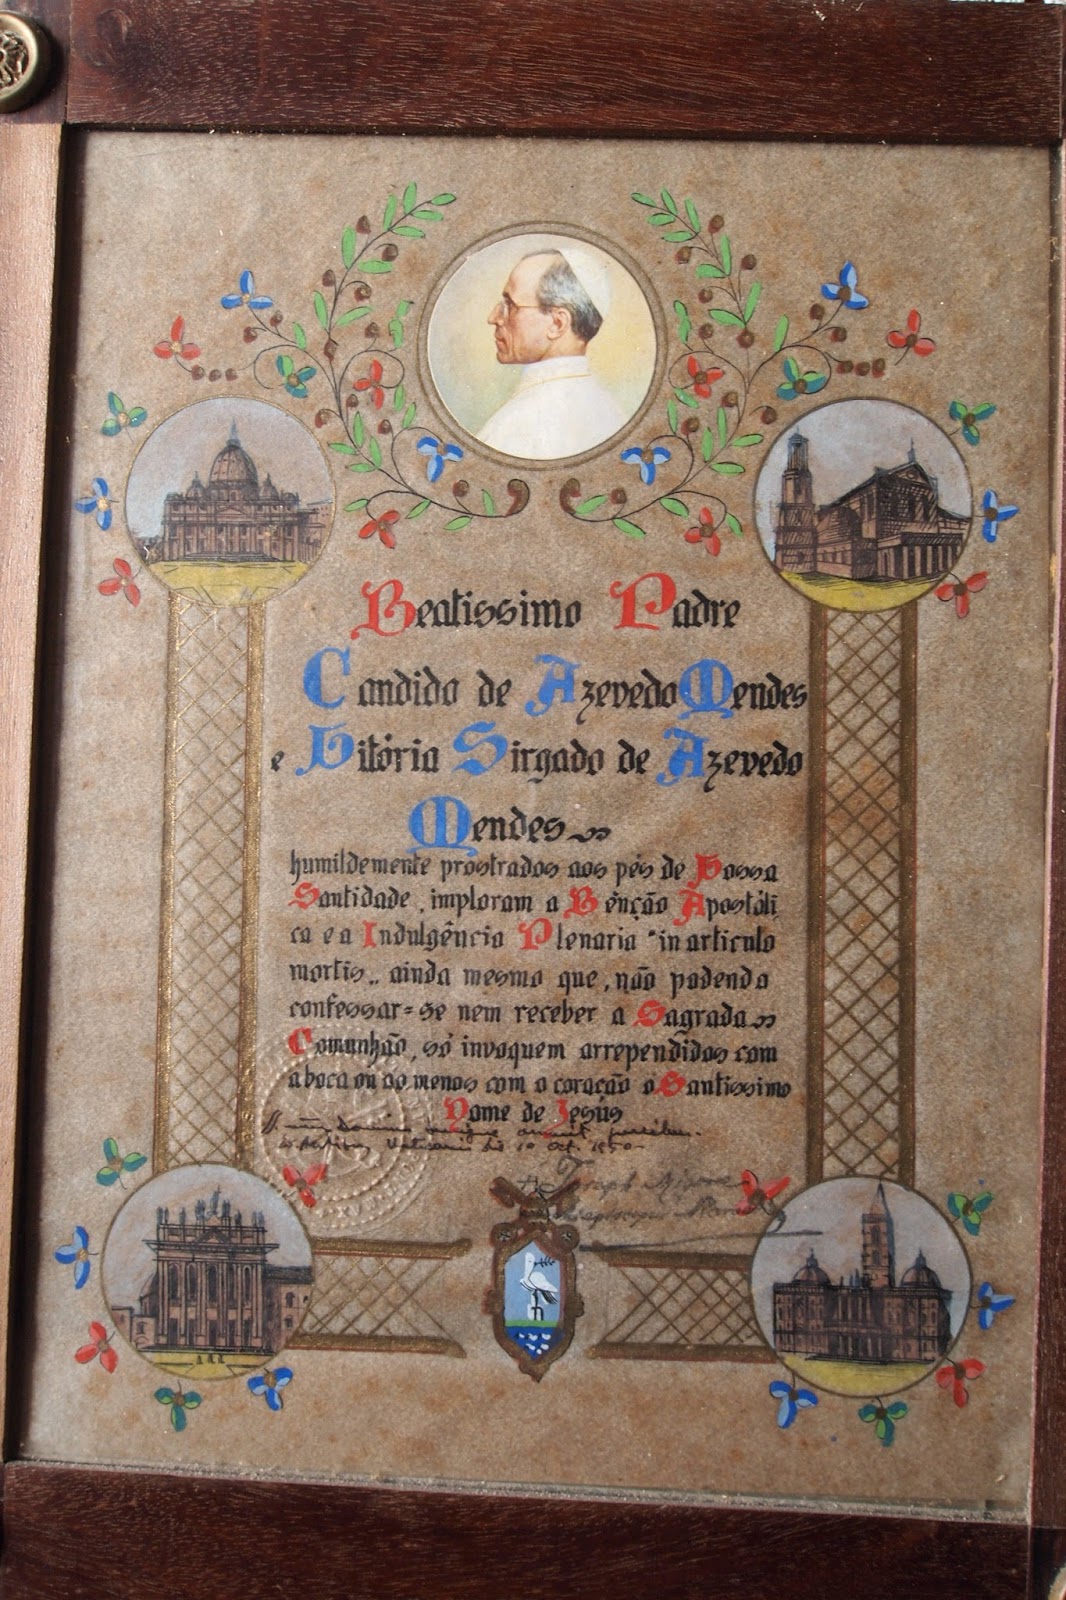 Beatissimo Padre
Candido de Azevedo Mendes
e Vitória Sirgado de Azevedo
Mendes
humildemente prostrados aos pés de Vossa
Santidade, imploram a Bênção Apostóli
ca e a Indulgência Plenaria "in articulo
mortis„ ainda mesmo que, não podendo
confessar=se nem receber a Sagrada
Comunhão, só invoquem arrependidos com
a boca ou ao menos com o coração o Santissimo
Nome de Jesús
Domino annuit
Vaticanis die 10 Oct. 1950
Joseph